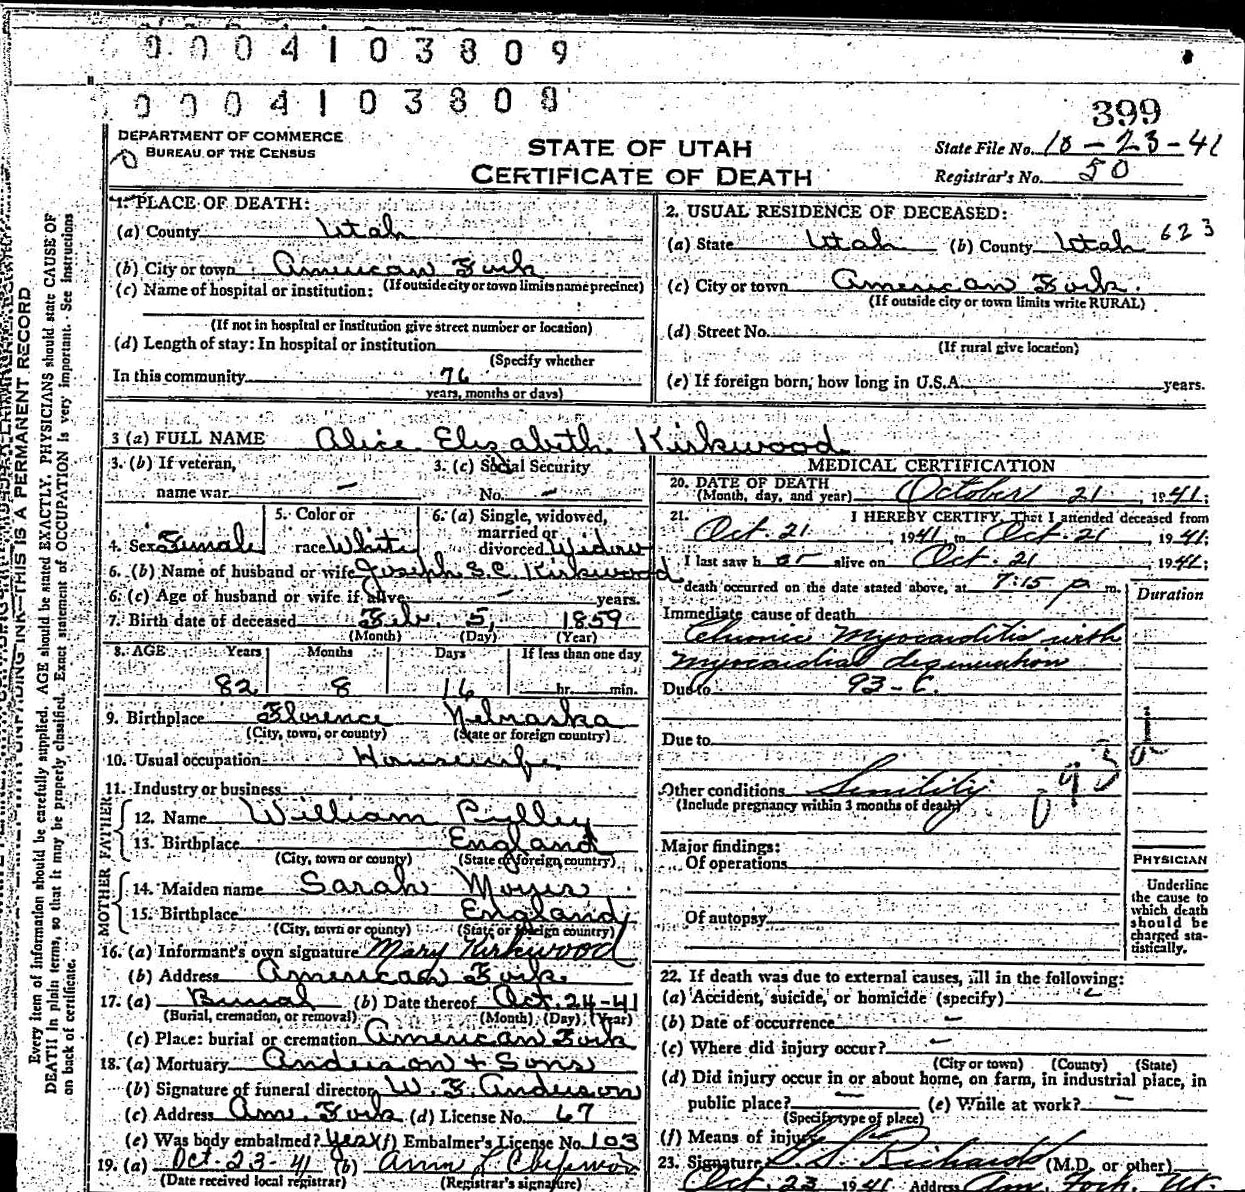 0004103809
0004103808
399
DEPARTMENT OF COMMERCE
BUREAU OF THE CENSUS
STATE OF UTAH
CERTIFICATE OF DEATH
State File No. 10-23-41
Registrar's No. 50
Every item of information should be carefully supplied. AGE should be stated EXACTLY. PHYSICIANS should state CAUSE OF
DEATH in plain terms, so that it may be properly classified. Exact statement of OCCUPATION is very important. See instructions
on back of certificate.
THIS IS A PERMANENT RECORD
1. PLACE OF DEATH:
(a) County Utah
(b) City or town American Fork
(If outside city or town limits name precinct)
(c) Name of hospital or institution:
(If not in hospital or institution give street number or location)
(d) Length of stay: In hospital or institution
(Specify whether
In this community 76
years, months or days)
2. USUAL RESIDENCE OF DECEASED:
(a) State Utah (b) County Utah 623
(c) City or town American Fork.
(If outside city or town limits write RURAL)
(d) Street No.
(If rural give location)
(e) If foreign born, how long in U.S.A. years.
3 (a) FULL NAME Alice Elizabeth Kirkwood
3. (b) If veteran,
name war —
3. (c) Social Security
No. —
4. Sex Female
5. Color or
race White
6. (a) Single, widowed,
married or
divorced Widow
6. (b) Name of husband or wife Joseph S.C. Kirkwood
6. (c) Age of husband or wife if alive — years.
7. Birth date of deceased Feb. 5, 1859
(Month) (Day) (Year)
8. AGE Years Months Days If less than one day
82 8 16 hr. min.
9. Birthplace Florence Nebraska
(City, town, or county) (State or foreign country)
10. Usual occupation Housewife
11. Industry or business
FATHER
12. Name William Pulley
13. Birthplace England
(City, town or county) (State or foreign country)
MOTHER
14. Maiden name Sarah
15. Birthplace England
(City, town or county) (State or foreign country)
16. (a) Informant's own signature Mary Kirkwood
(b) Address American Fork
17. (a) Burial (b) Date thereof Oct-24-41
(Burial, cremation, or removal) (Month) (Day) (Year)
(c) Place: burial or cremation American Fork
18. (a) Mortuary Anderson + Sons
(b) Signature of funeral director W. F. Anderson
(c) Address Am. Fork (d) License No. 67
(e) Was body embalmed? Yes (f) Embalmer's License No. 103
19. (a) Oct-23-41 (b)
(Date received local registrar) (Registrar's signature)
MEDICAL CERTIFICATION
20. DATE OF DEATH
(Month, day, and year) October 21, 1941;
21. I HEREBY CERTIFY, That I attended deceased from
Oct. 21, 1941, to Oct. 21, 1941;
I last saw h er alive on Oct. 21 1941;
death occurred on the date stated above, at 7:15 p m.
Duration
Immediate cause of death
Chronic Myocarditis with
myocardial degeneration
Due to 93-C.
Due to
Other conditions Senility
(Include pregnancy within 3 months of death)
Major findings:
Of operations
Of autopsy
PHYSICIAN
Underline
the cause to
which death
should be
charged sta-
tistically.
22. If death was due to external causes, fill in the following:
(a) Accident, suicide, or homicide (specify) —
(b) Date of occurrence —
(c) Where did injury occur? —
(City or town) (County) (State)
(d) Did injury occur in or about home, on farm, in industrial place, in
public place? — (e) While at work? —
(Specify type of place)
(f) Means of injury
23. Signature Richards (M.D. or other)
Oct. 23 1941 Address Am. Fork, Ut.